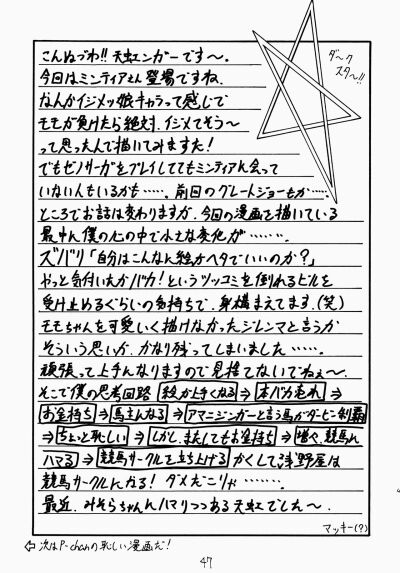 こんぬづわ!! 天虹ンガーです〜。
今回はミンティアさん登場ですね、
なんかイジメッ娘キャラって感じで
モモが負けたら絶対、イジメてそう〜
って思ったんで描いてみますた!
でもゼノサーガをプレイしててもミンティアに会って
いない人もいるかも……。前回のグレートジョーもか……。
ところでお話は変わりますが、今回の漫画を描いている
最中に僕の心の中で小さな変化が………。
ズバリ「自分はこんなに絵がヘタでいいのか?」
やっと気付いたかバカ!というツッコミを倒れるビルを
受け止めるぐらいの気持ちで、身構えてます。(笑)
モモちゃんを可愛いく描けなかったジレンマと言うか
そういう思いが、かなり残ってしまいました……。
頑張って上手くなりますので見捨てないでねぇ〜。
そこで僕の思考回路 絵が上手くなる⇒本バカ売れ⇒
お金持ち⇒馬主になる⇒アマニジンガーと言う馬がダービー制覇
⇒ちょっと恥しい⇒しかし、またしてもお金持ち⇒増々、競馬に
ハマる⇒競馬サークルを立ち上げる かくして浅野屋は
競馬サークルになる! ダメだこりゃ……。
最近、みそらちゃんにハマりつつある天虹でした〜。
ダ〜ク
スタ〜!!
マッキー(?)
⇦ 次はP-chanの恥しい漫画だ!
47